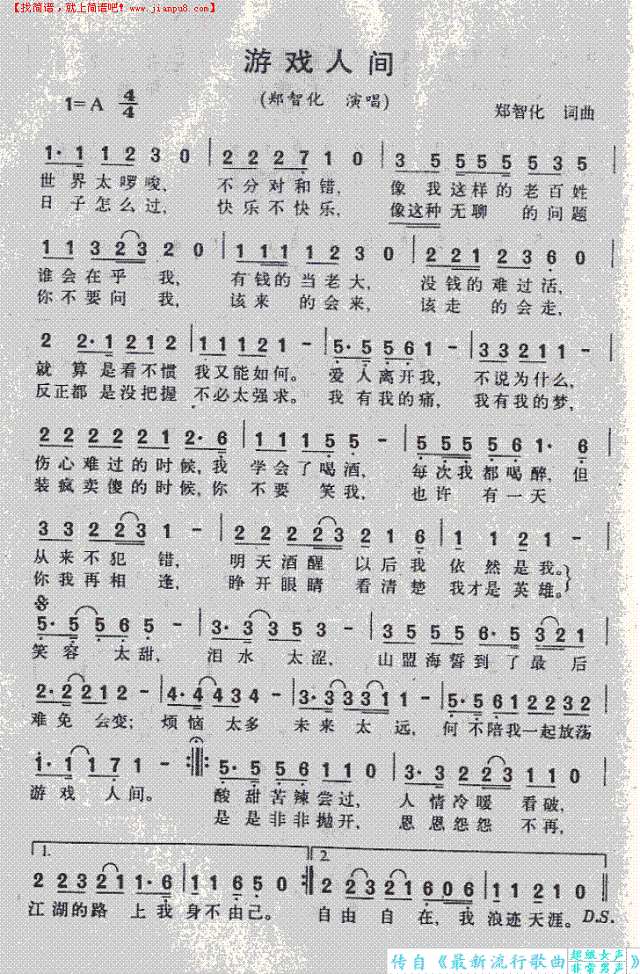 【找简谱，就上简谱吧！www.jianpu8.com】
游戏人间
(郑智化 演唱)
1=A 4/4
郑智化 词曲
1· 1 1 2 3 0 | 2 2 2 7 1 0 | 3 5 5 5 5 5 3 5 |
世界太啰唆， 不分对和错， 像 我这样的老百姓
日子怎么过， 快乐不快乐， 像这种无聊 的问题
1 1 3 2 3 2 0 | 1 1 1 1 2 3 0 | 2 2 1 2 3 6 0 |
谁会在乎 我， 有钱的当老大， 没钱的难过活，
你不要问 我， 该来 的会来， 该走 的会走，
2 2· 1 2 1 2 | 1 1 1 2 1 - | 5· 5 5 6 1 - | 3 3 2 1 1 - |
就 算是看不惯 我又能如何。 爱人离开我， 不说为什么，
反正都 是没把握 不必太强求。 我有我的痛， 我有我的梦，
2 2 2 2 2 2 1 2· 6 | 1 1 1 5 5 - | 5 5 5 5 6 1· 6 |
伤心难过的时候，我 学会了喝酒， 每次我都喝醉，但
装疯卖傻的时候，你 不要 笑我， 也许 有一天
3 3 2 2 2 3 1 - | 2 2 2 2 3 2 1 6 | 1 1 2 1 - |
从来不犯 错， 明天酒醒 以后我 依然是我。
你我再相 逢， 睁开眼睛 看清楚 我才是英雄。
5· 5 5 6 5 - | 3· 3 3 5 3 - | 3 5 5 5 6· 5 3 2 1 |
笑容 太甜， 泪水 太涩， 山盟海誓到了最后
2· 2 2 1 2 - | 4· 4 4 3 4 - | 3· 3 3 3 1 1 - | 5· 5 6 1 2 2 3 2
难免 会变； 烦恼 太多 未来太 远， 何不陪我一起放荡
1· 1 1 7 1 - :‖: 5· 5 5 6 1 1 0 | 3· 3 2 2 3 1 1 0 |
游戏 人间。 酸甜苦辣尝过， 人情冷暖 看破，
是是非非抛开， 恩恩怨怨 不再，
1. 2.
2 2 3 2 1 1· 6 | 1 1 6 5 0 :‖ 2 2 3 2 1 6 0 6 | 1 1 2 1 0 ‖
江湖的路 上我 身不由己。 自由 自在，我 浪迹天涯。D.S.
传自《最新流行歌曲 超级女声 非常男声》